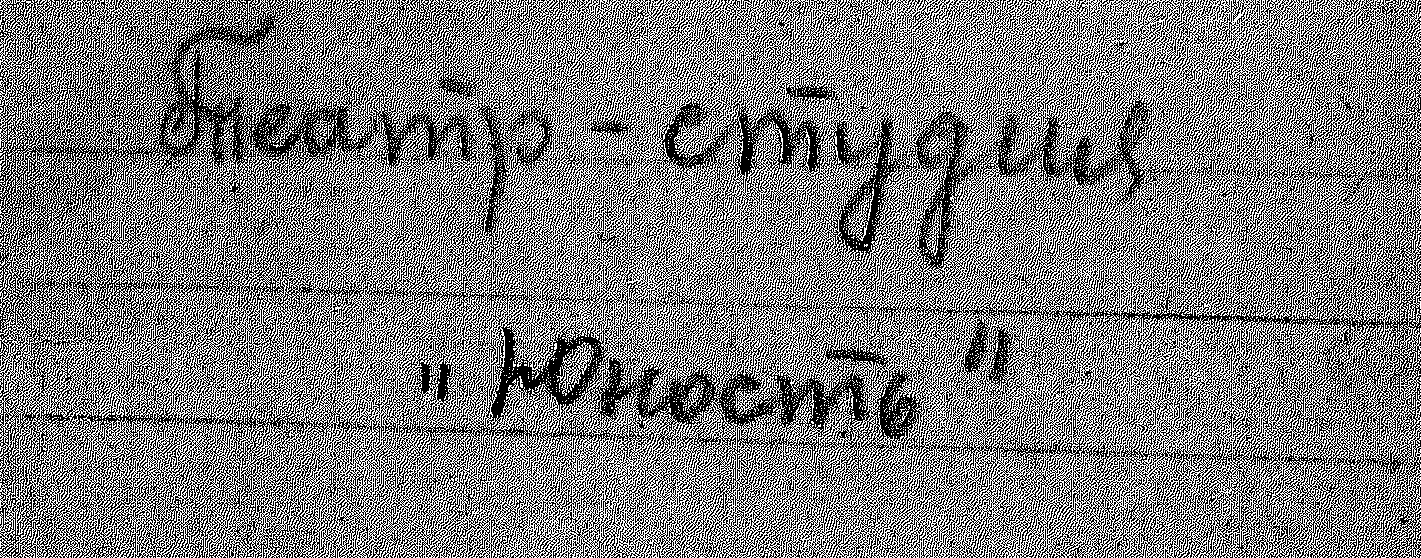 Театр-студия
"Юность"